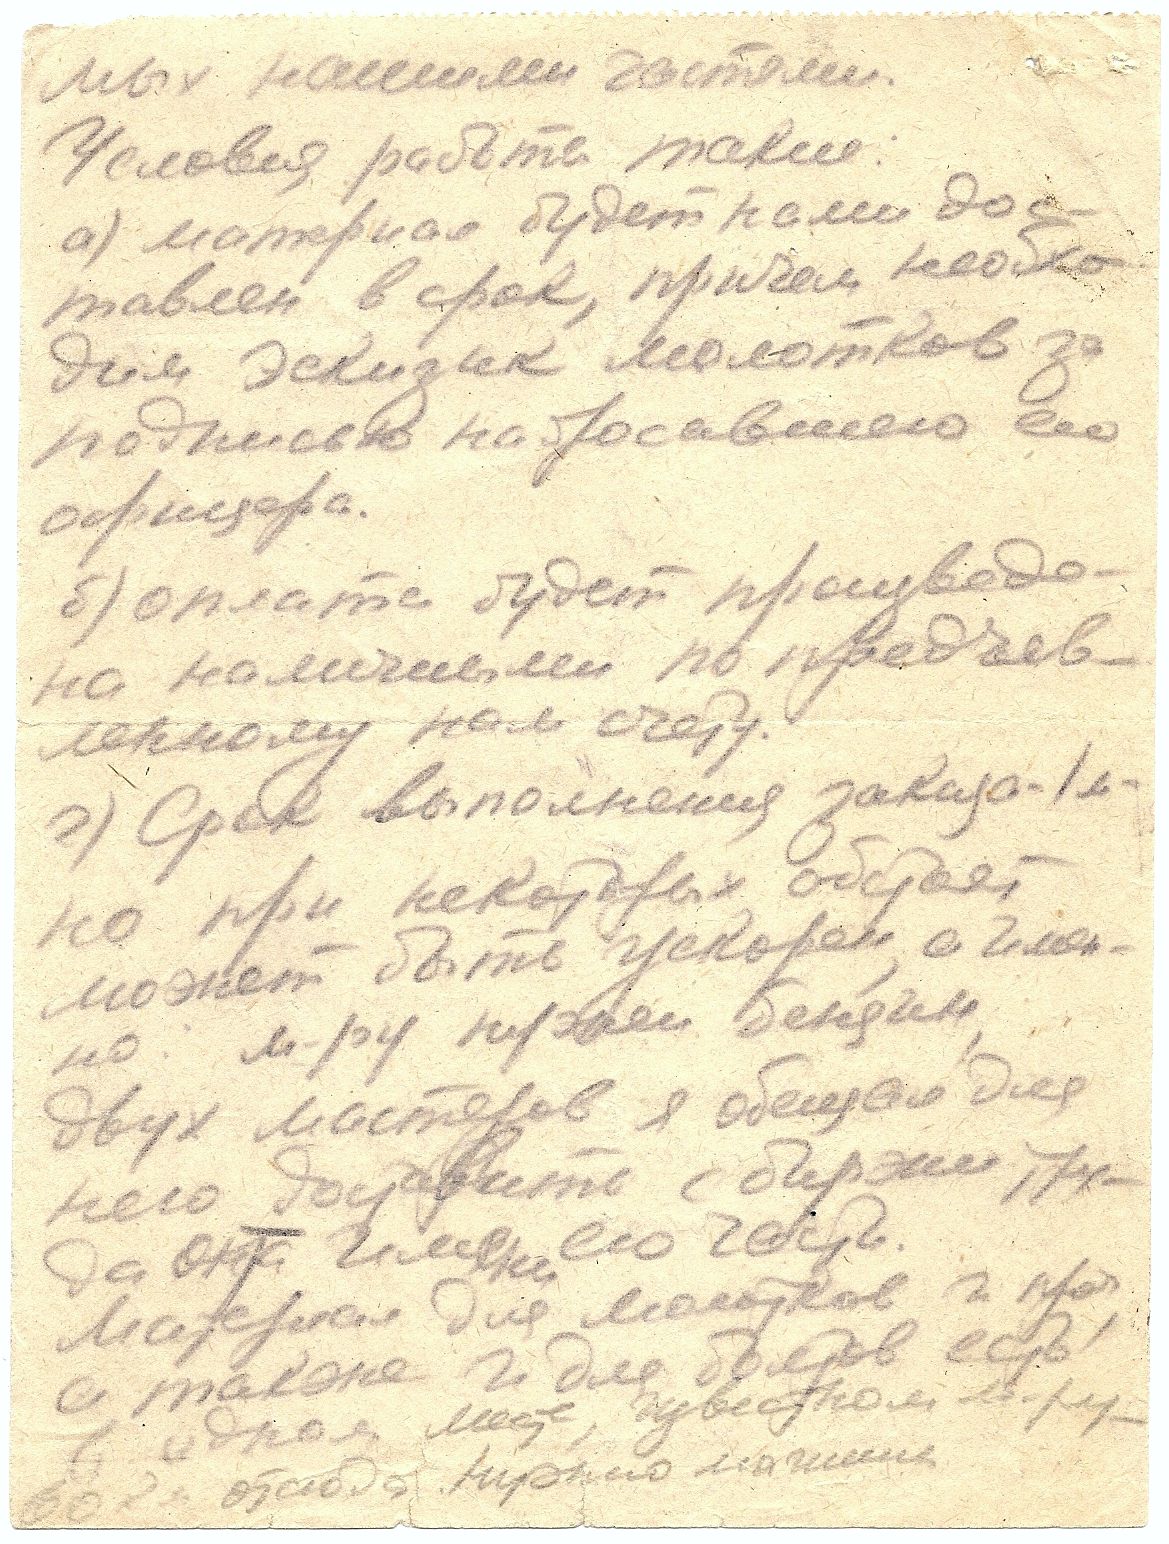 мых нашими частями.
Условия работы такие:
а) материал будет нами дос-
тавлен в срок, причем необхо-
дим эскизик молотков за
подписью набросавшего его
офицера.
б) оплата будет производе-
на наличными по предъяв-
ленному нам счету.
г) Срок выполнения заказа - 1 м-
но при некоторых обстоят
может быть ускорен, а имен-
но: м-ру нужен бензин,
двух мастеров я обещал для
него доставить с биржи тру-
да от имени его части.
Материал для молотков и проч,
а также и для болтов есть
в одном месте, известном м-ру
отсюда нужно машины